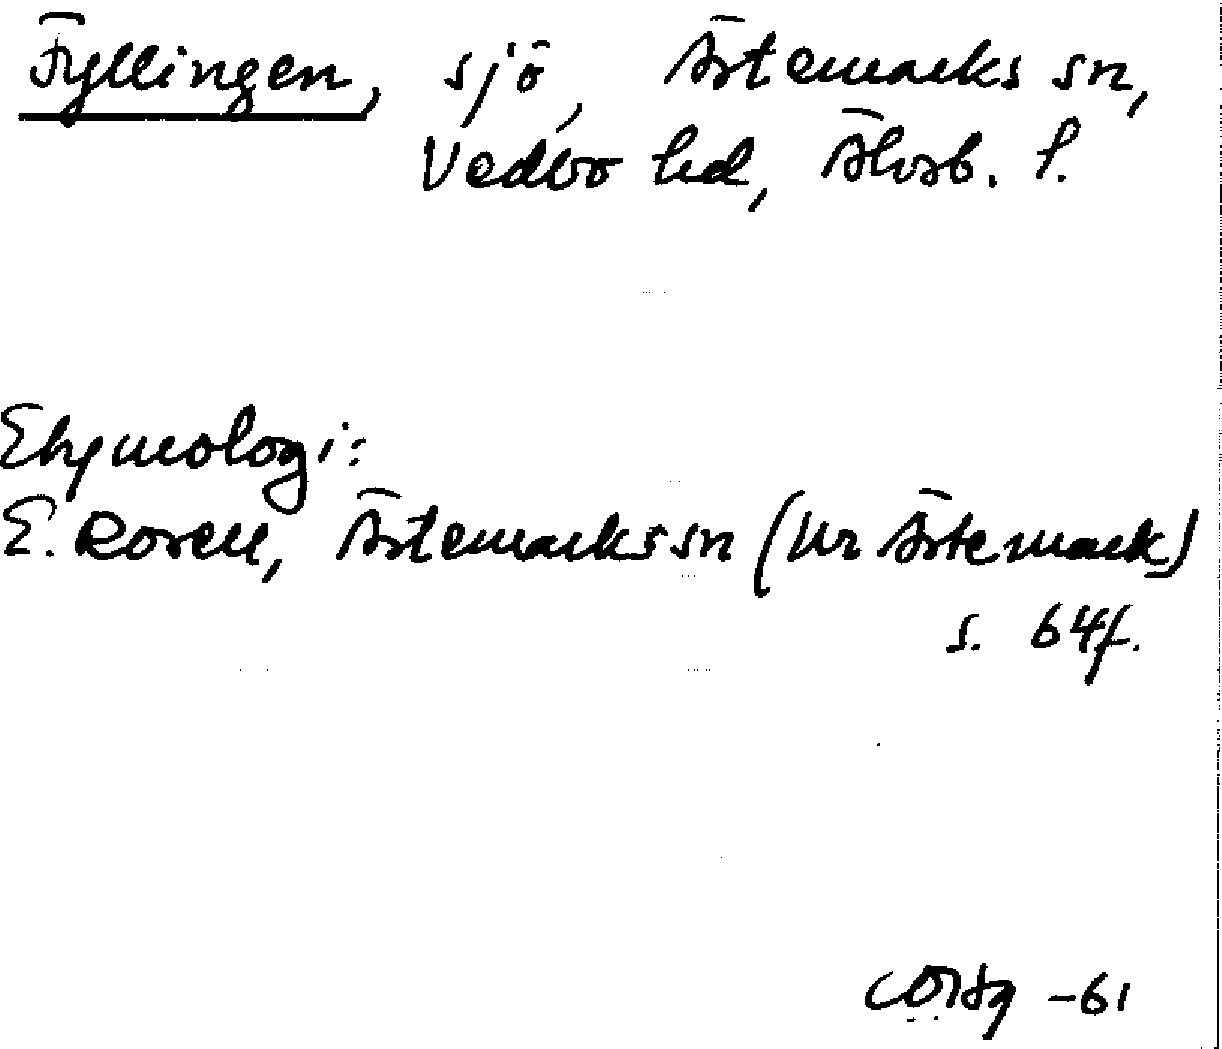 Fyllingen, sjö, Ärtemarks sn,
Vedbo hd, Älvsb. l.
Etymologi:
E. Rosell, Ärtemarks sn (Ur Ärtemark)
s. 64f.
-61